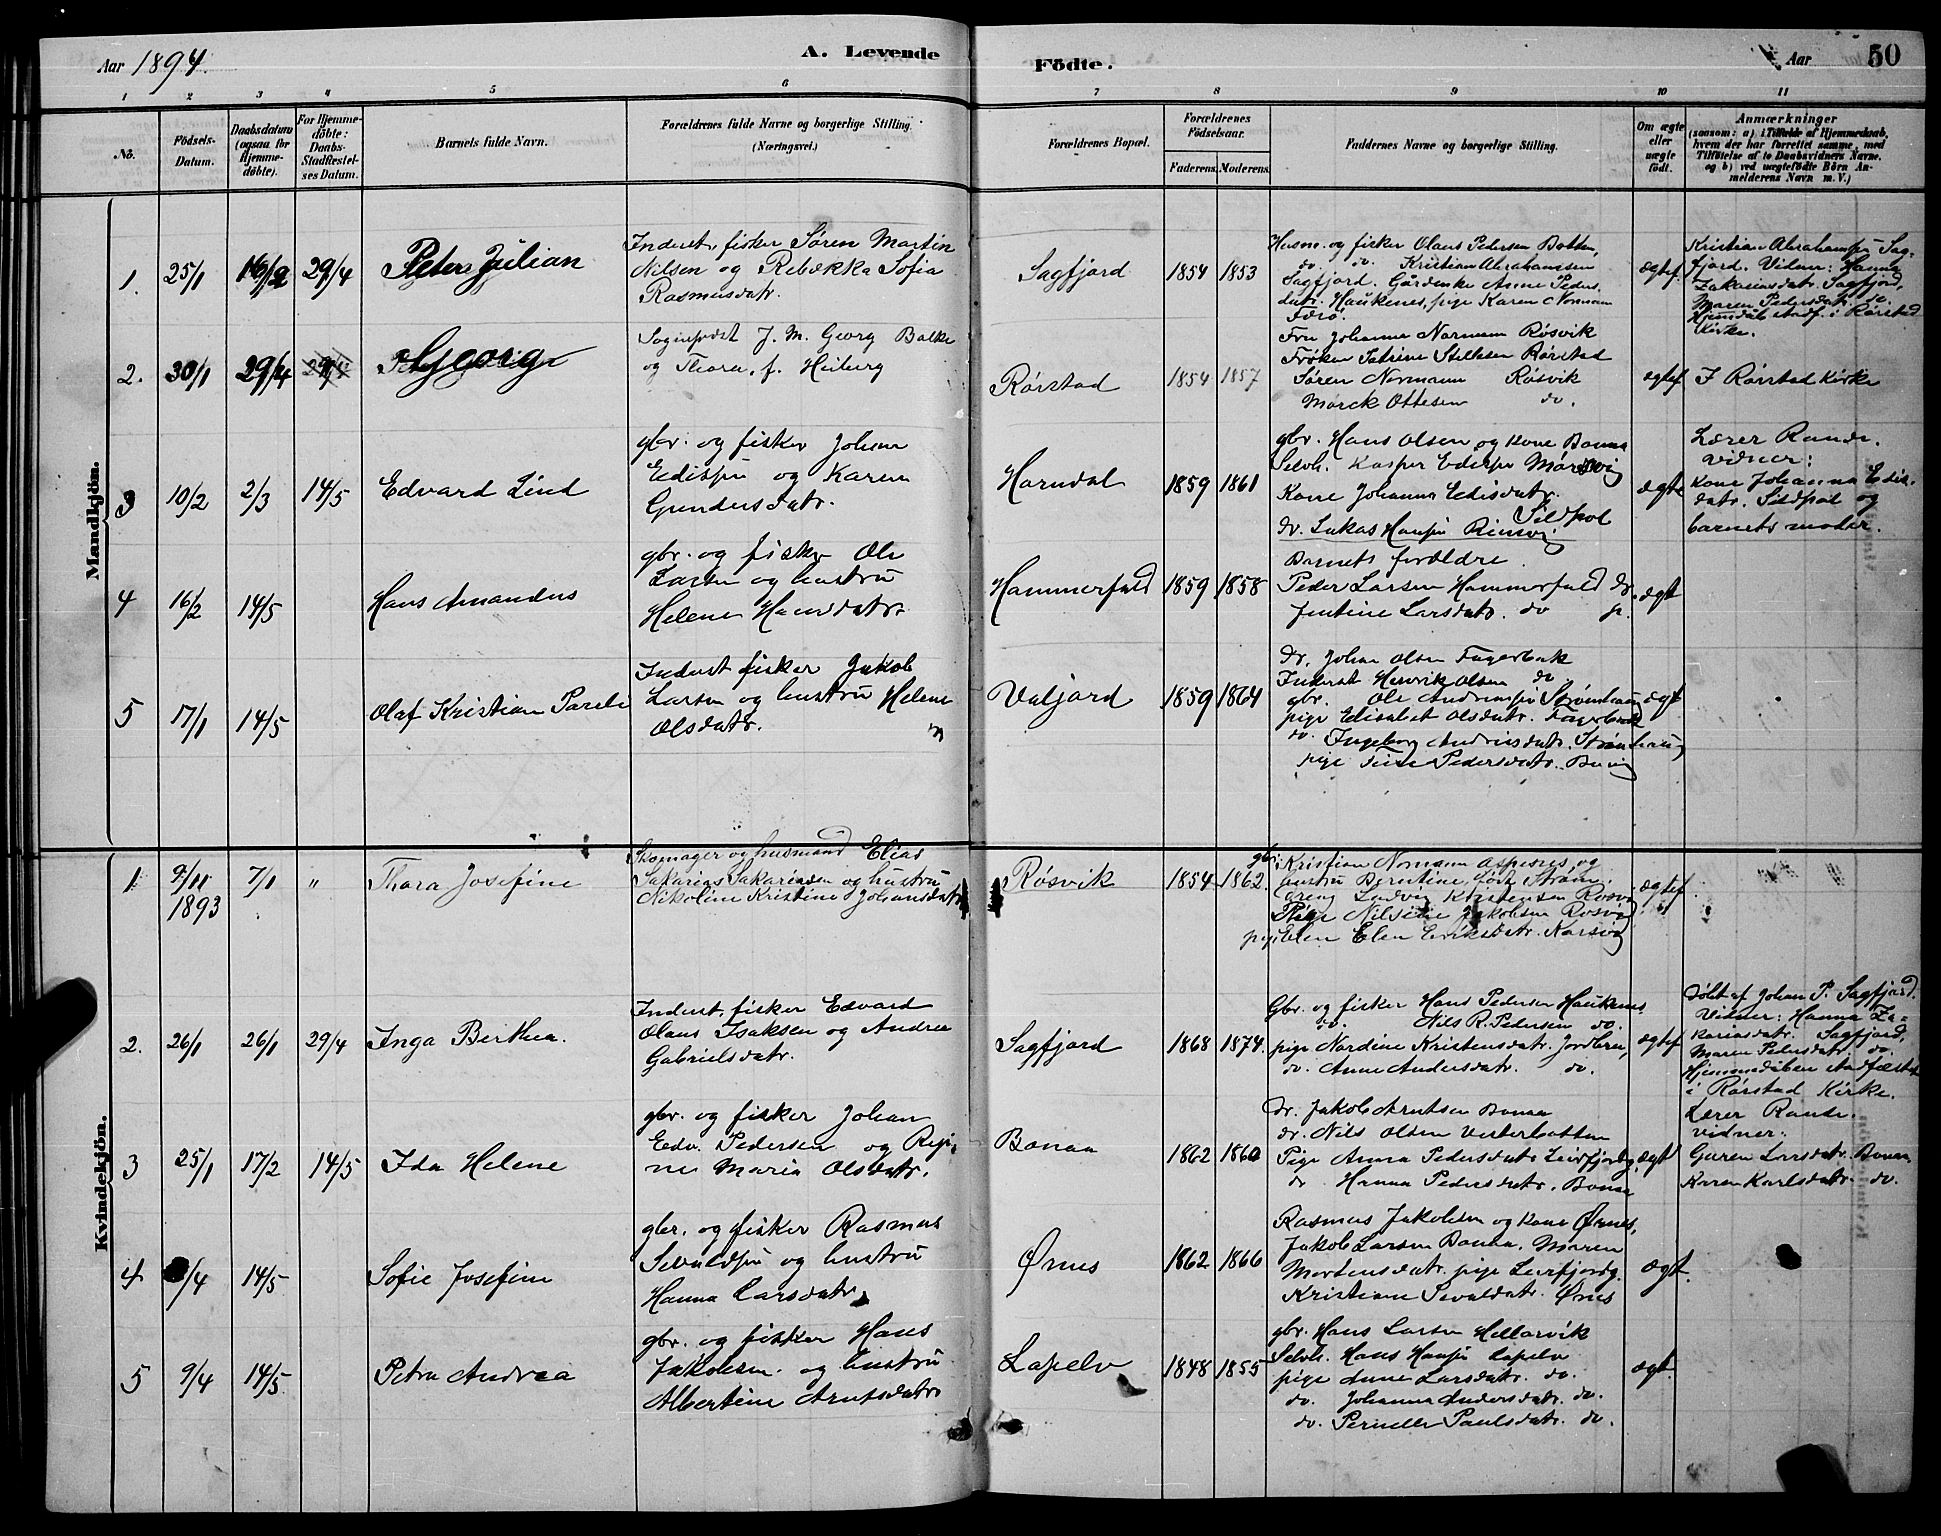 Aar 1894.
A. Levende
Födte.
Aar
50
1 2 3 4 5 6 7 8 9 10 11
No.
Födsels-Datum.
Daabsdatum (ogsaa for Hjemme-döbte).
For Hjemme-döbte: Daabs-Stadfæstel-ses Datum.
Barnets fulde Navn.
Forældrenes fulde Navne og borgerlige Stilling. (Næringsvei.)
Forældrenes Bopæl.
Forældrenes Födselsaar.
Faderens. Moderens.
Faddernes Navne og borgerlige Stilling.
Om ægte eller uægte födt.
Anmærkninger
(saasom: a) i Tilfælde af Hjemmedaab, hvem der har forrettet samme, med Tilföielse af to Daabsvidners Navne, og b) ved uægtefödte Börn An-melderens Navn m. V.)
Mandkjön.
1. 25/1 16/2 29/4 Peter Julian
Inderst, fisker Søren Martin
Nilsen og Rebekka Sofia
Rasmusdatr.
Sagfjord 1854 1853
Husm. og fisker Olaus Pedersen Botten,
do. do. Kristian Abrahamssen
Sagfjord. Gårdenke Anne Peders
datr. Haukenes, pige Karen Normann
ægtef.
Kristian Abrahamsen Sag-
fjord. Vidner: Hanna
Zakariasdatr. Sagfjord,
Maren Pedersdatr. do.
Hjemdåb stadf. i Rørstad
Kirke.
2. 30/1 29/4 Georg
Sogneprest J. M. Georg Balke
og Thora, f. Heiberg
Rørstad 1854 1857
Fru Johanna Normann Røsvik
Frøken Petrine Steffesen Rørstad
Søren Normann Røsvik
Marck Ottesen do.
ægtef I Rørstad Kirke
3 10/2 2/3 14/5 Edvard Lind
gbr. og fisker Johan
Edisen og Karen
Gundersdatr.
Horndal 1859 1861
gbr. Hans Olsen og kone Bonaa
Selvh. Kasper Edisen Mørsvig
Kone Johanna Edisdatr.
Sildpol
dr. Lukas Hansen
ægte
Lærer Rande.
vidner:
kone Johanna Edis-
datr. Sildpol og
barnets moder.
4 16/2 14/5 Hans Amandus
gbr. og fisker Ole
Larsen og hustru
Helene Hansdatr.
Hammerfald 1859 1858
Barnets forældre.
Peder Larsen Hammerfald dr.
Jentine Larsdatr. do p.
ægt
5 17/1 14/5 Olaf Kristian Parelius
Inderst fisker Jakob
Larsen og hustru Helene
Olsdatr.
Valjord 1859 1864
dr. Johan Olsen Fagerbak
Inderst Henrik Olsen do
gbr. Ole Andreasen Strømhaug
pige Elisabet Olsdatr. Fagerbak
do. Ingeborg Andreasdatr. Strømhaug
pige Pedersdatr.
ægt
Kvindekjön.
1 9/11 1893 7/1 " Thora Josefine
Skomager og husmand Elias
Sakarias Sakariasen og hustru
Nikoline Kristine Johansdatr
Røsvik 1854 1862
gbr. Kristian Normann Aspenes og
hustru Berntine, født Strøm.
Dreng Ludvig Kristensen Røsvig
Pige Nilsine Jakobsen Rosvig
pige Elen Eriksdatr. Korsvig
ægtef.
2. 26/1 26/1 29/4 Inga Berthea.
Inderst, fisker Edvard
Olaus Isaksen og Andrea
Gabrielsdatr.
Sagfjord 1868 1874.
Gbr. og fisker Hans Pedersen Haukenes
do. Nils R. Pedersen do.
pige Nordine Kristensdatr. Jordbru,
do. Anne Andersdatr. do.
ægtef
Døbt af Johan P. Sagfjord.
Vidner: Hanna Za-
kariasdatr. Sagfjord,
Maren Pedersdatr. do.
Hjemmedåben stadfæstet
i Rørstad Kirke.
3 25/1 17/2 14/5 Ida Helene
gbr. og fisker Johan
Edv. Pedersen og Regi-
ne Maria Olsdatr.
Bonaa 1862 1860
dr. Jakob Arntsen Bonaa
dr. Nils Olsen Vesterbotten
Pige Anna Pedersdatr. Leirfjordg.
do Hanna Pedersdatr. Bonaa
ægt
Lærer Rande.
vidner:
Guren Larsdatr. Bonaa
Karen Karlsdatr. do.
4 /4 14/5 Sofie Josefine
gbr. og fisker Rasmus
Sivaldsen og hustru
Hanna Larsdatr.
Ørnes 1862 1866
Rasmus Jakobsen og kone Ørnes,
Jakob Larsen Bonaa. Maren
Mortensdatr. pige Leirfjordg.
Kristiane Sivaldsdatr. Ørnes
ægt.
5 9/4 14/5 Petra Andrea
gbr. og fisker Hans
Jakobsen og hustru
Albertine Arntsdatr
Lapelv 1848 1855
gbr. Hans Larsen Hellarvik
Selvh. Hans Hansen Lapelv
pige Anne Larsdatr. do.
do. Johanna Andersdatr. do.
do. Pernelle Paulsdatr. do.
ægt.